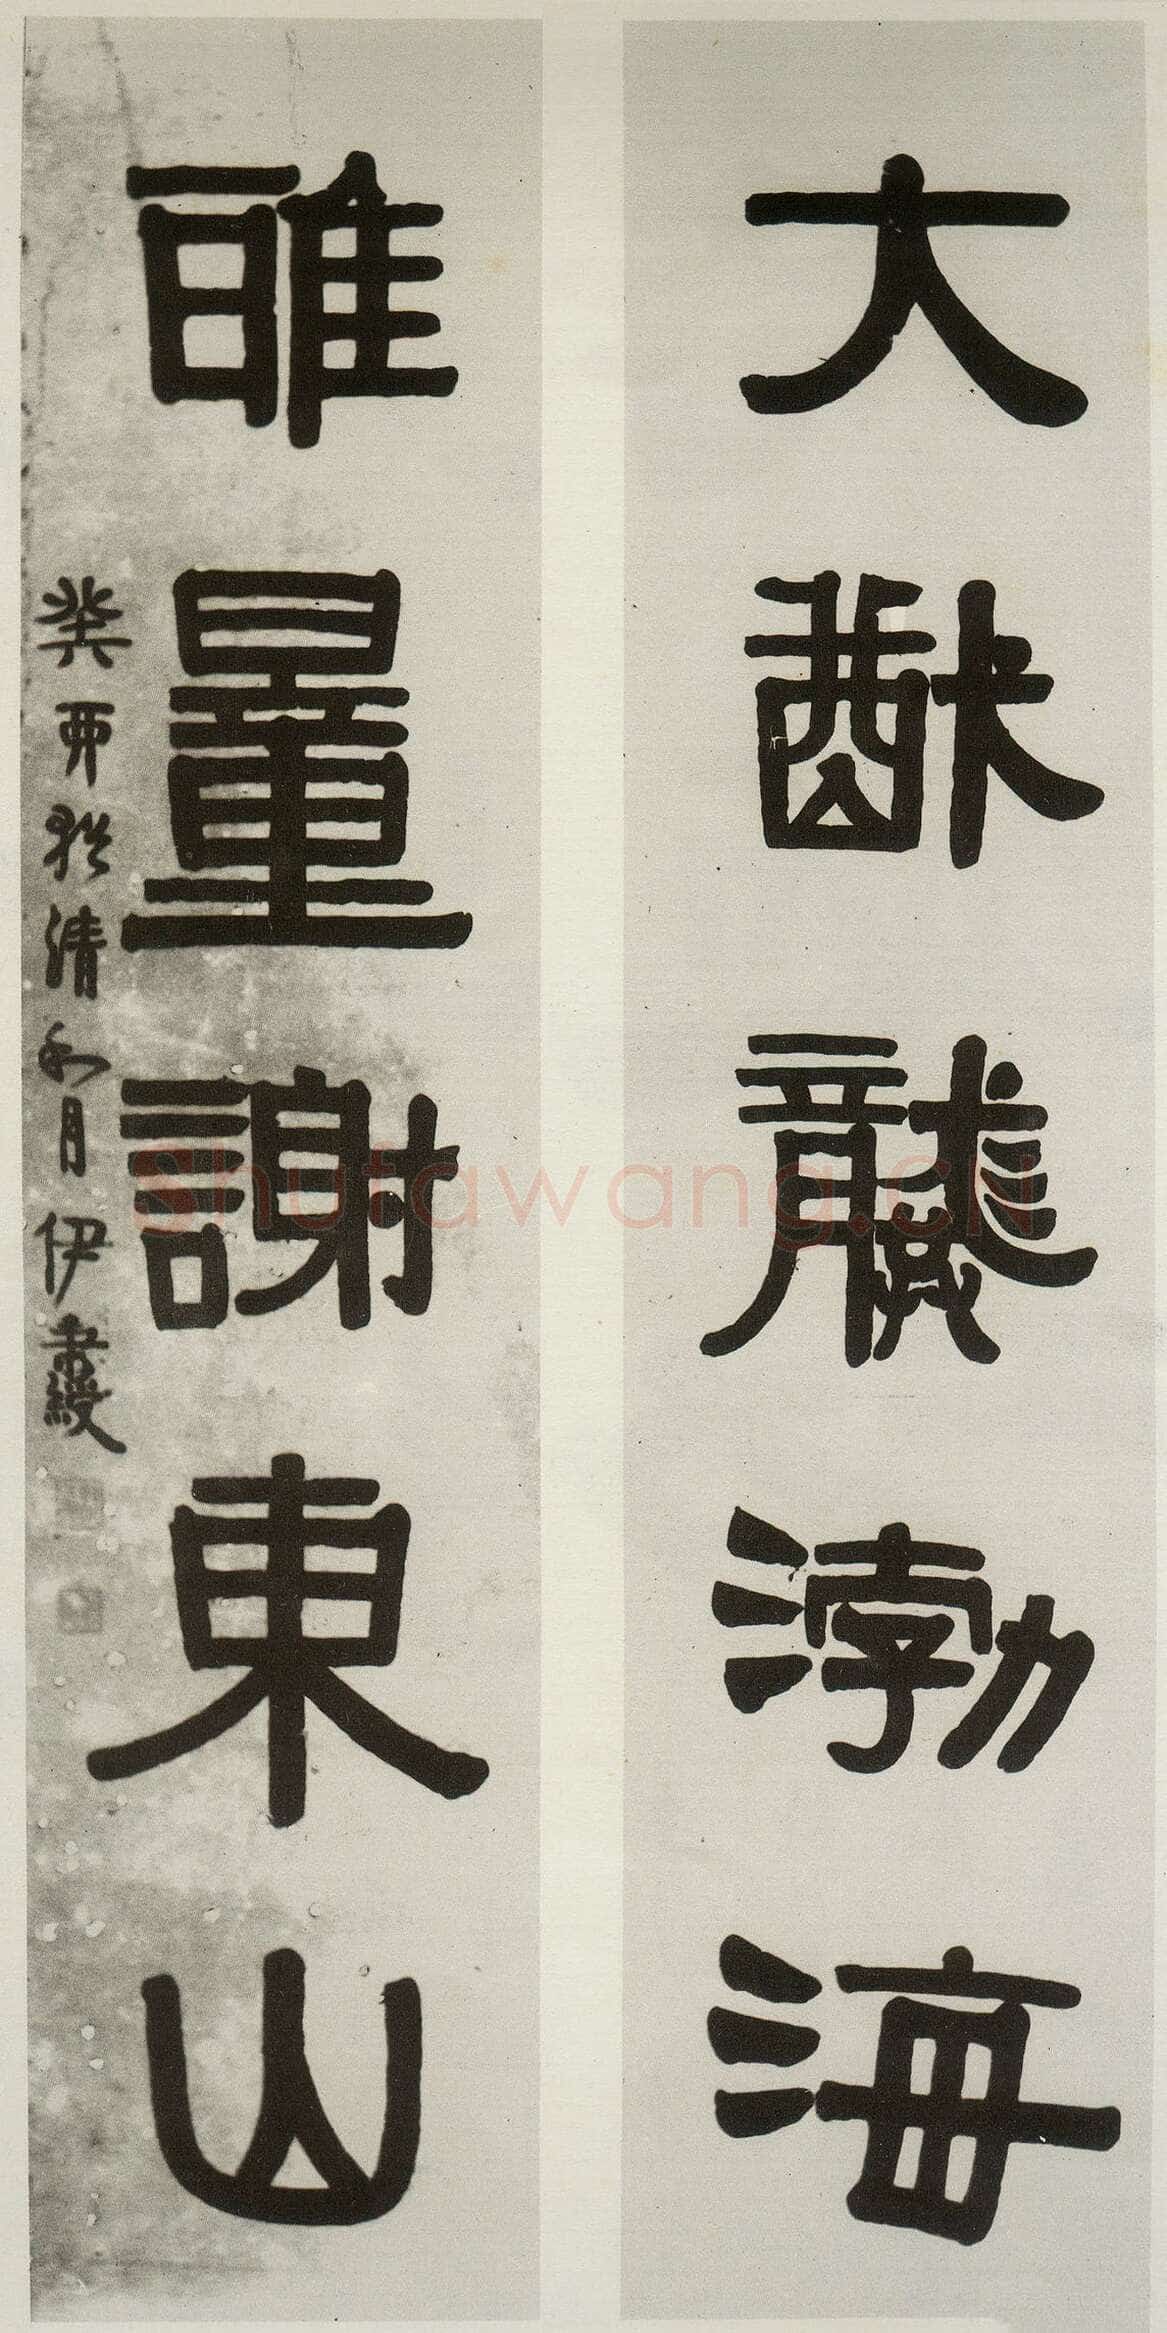 大猷龔渤海
雅量謝東山
癸酉清和月伊秉綬
Shufawang.CN